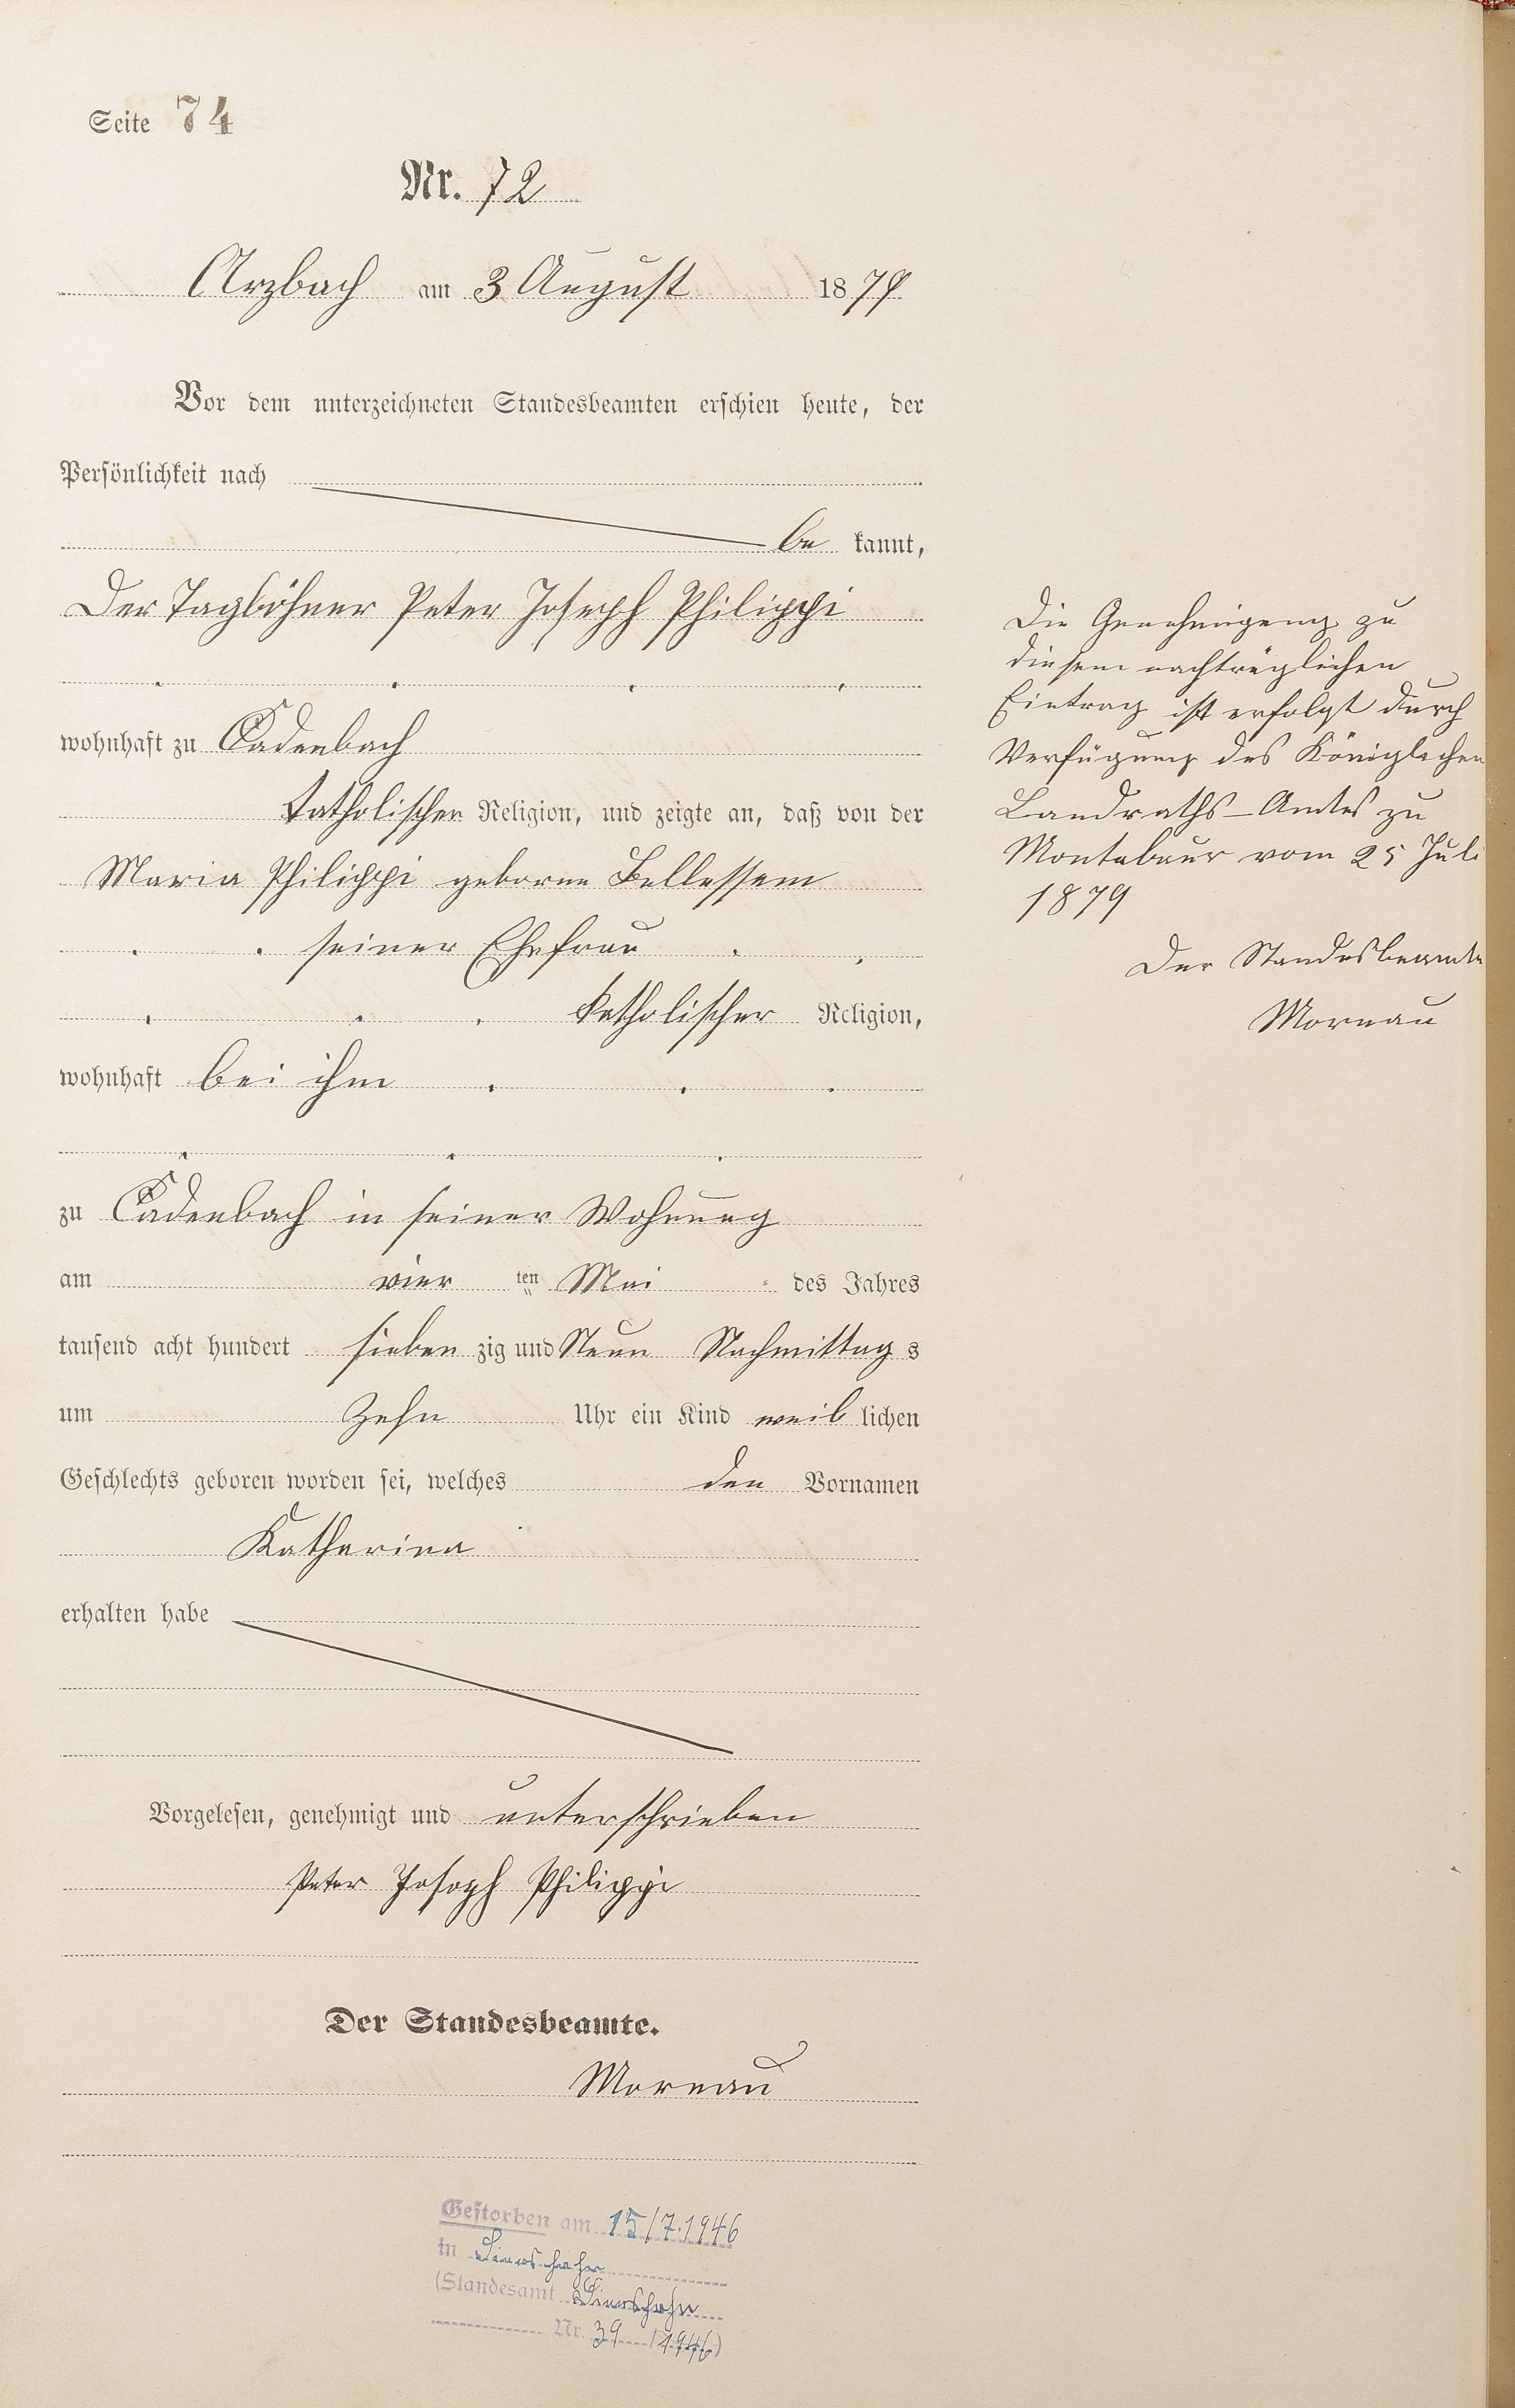 Seite 74
Nr. 72
Arzbach am 3 August 1879
Vor dem unterzeichneten Standesbeamten erschien heute, der
Persönlichkeit nach
be kannt,
Der Taglöhner Peter Joseph Philippi
wohnhaft zu Cadenbach
katholischer Religion, und zeigte an, daß von der
Maria Philippi geborne Bellessem
seiner Ehefrau
katholischer Religion,
wohnhaft bei ihm
zu Cadenbach in seiner Wohnung
am vier ten Mai des Jahres
tausend acht hundert sieben zig und Neun Nachmittag s
um Zehn Uhr ein Kind weib lichen
Geschlechts geboren worden sei, welches den Vornamen
Katharina
erhalten habe
Vorgelesen, genehmigt und unterschrieben
Peter Joseph Philippi
Der Standesbeamte.
Mornau
Die Genehmigung zu
diesem nachträglichen
Eintrag ist erfolgt durch
Verfügung des Königlichen
Landraths-Amtes zu
Montabaur vom 25 Juli
1879
Der Standesbeamte
Mornau
Gestorben am 15/7.1946
in
(Standesamt
Nr. 39 /1946)